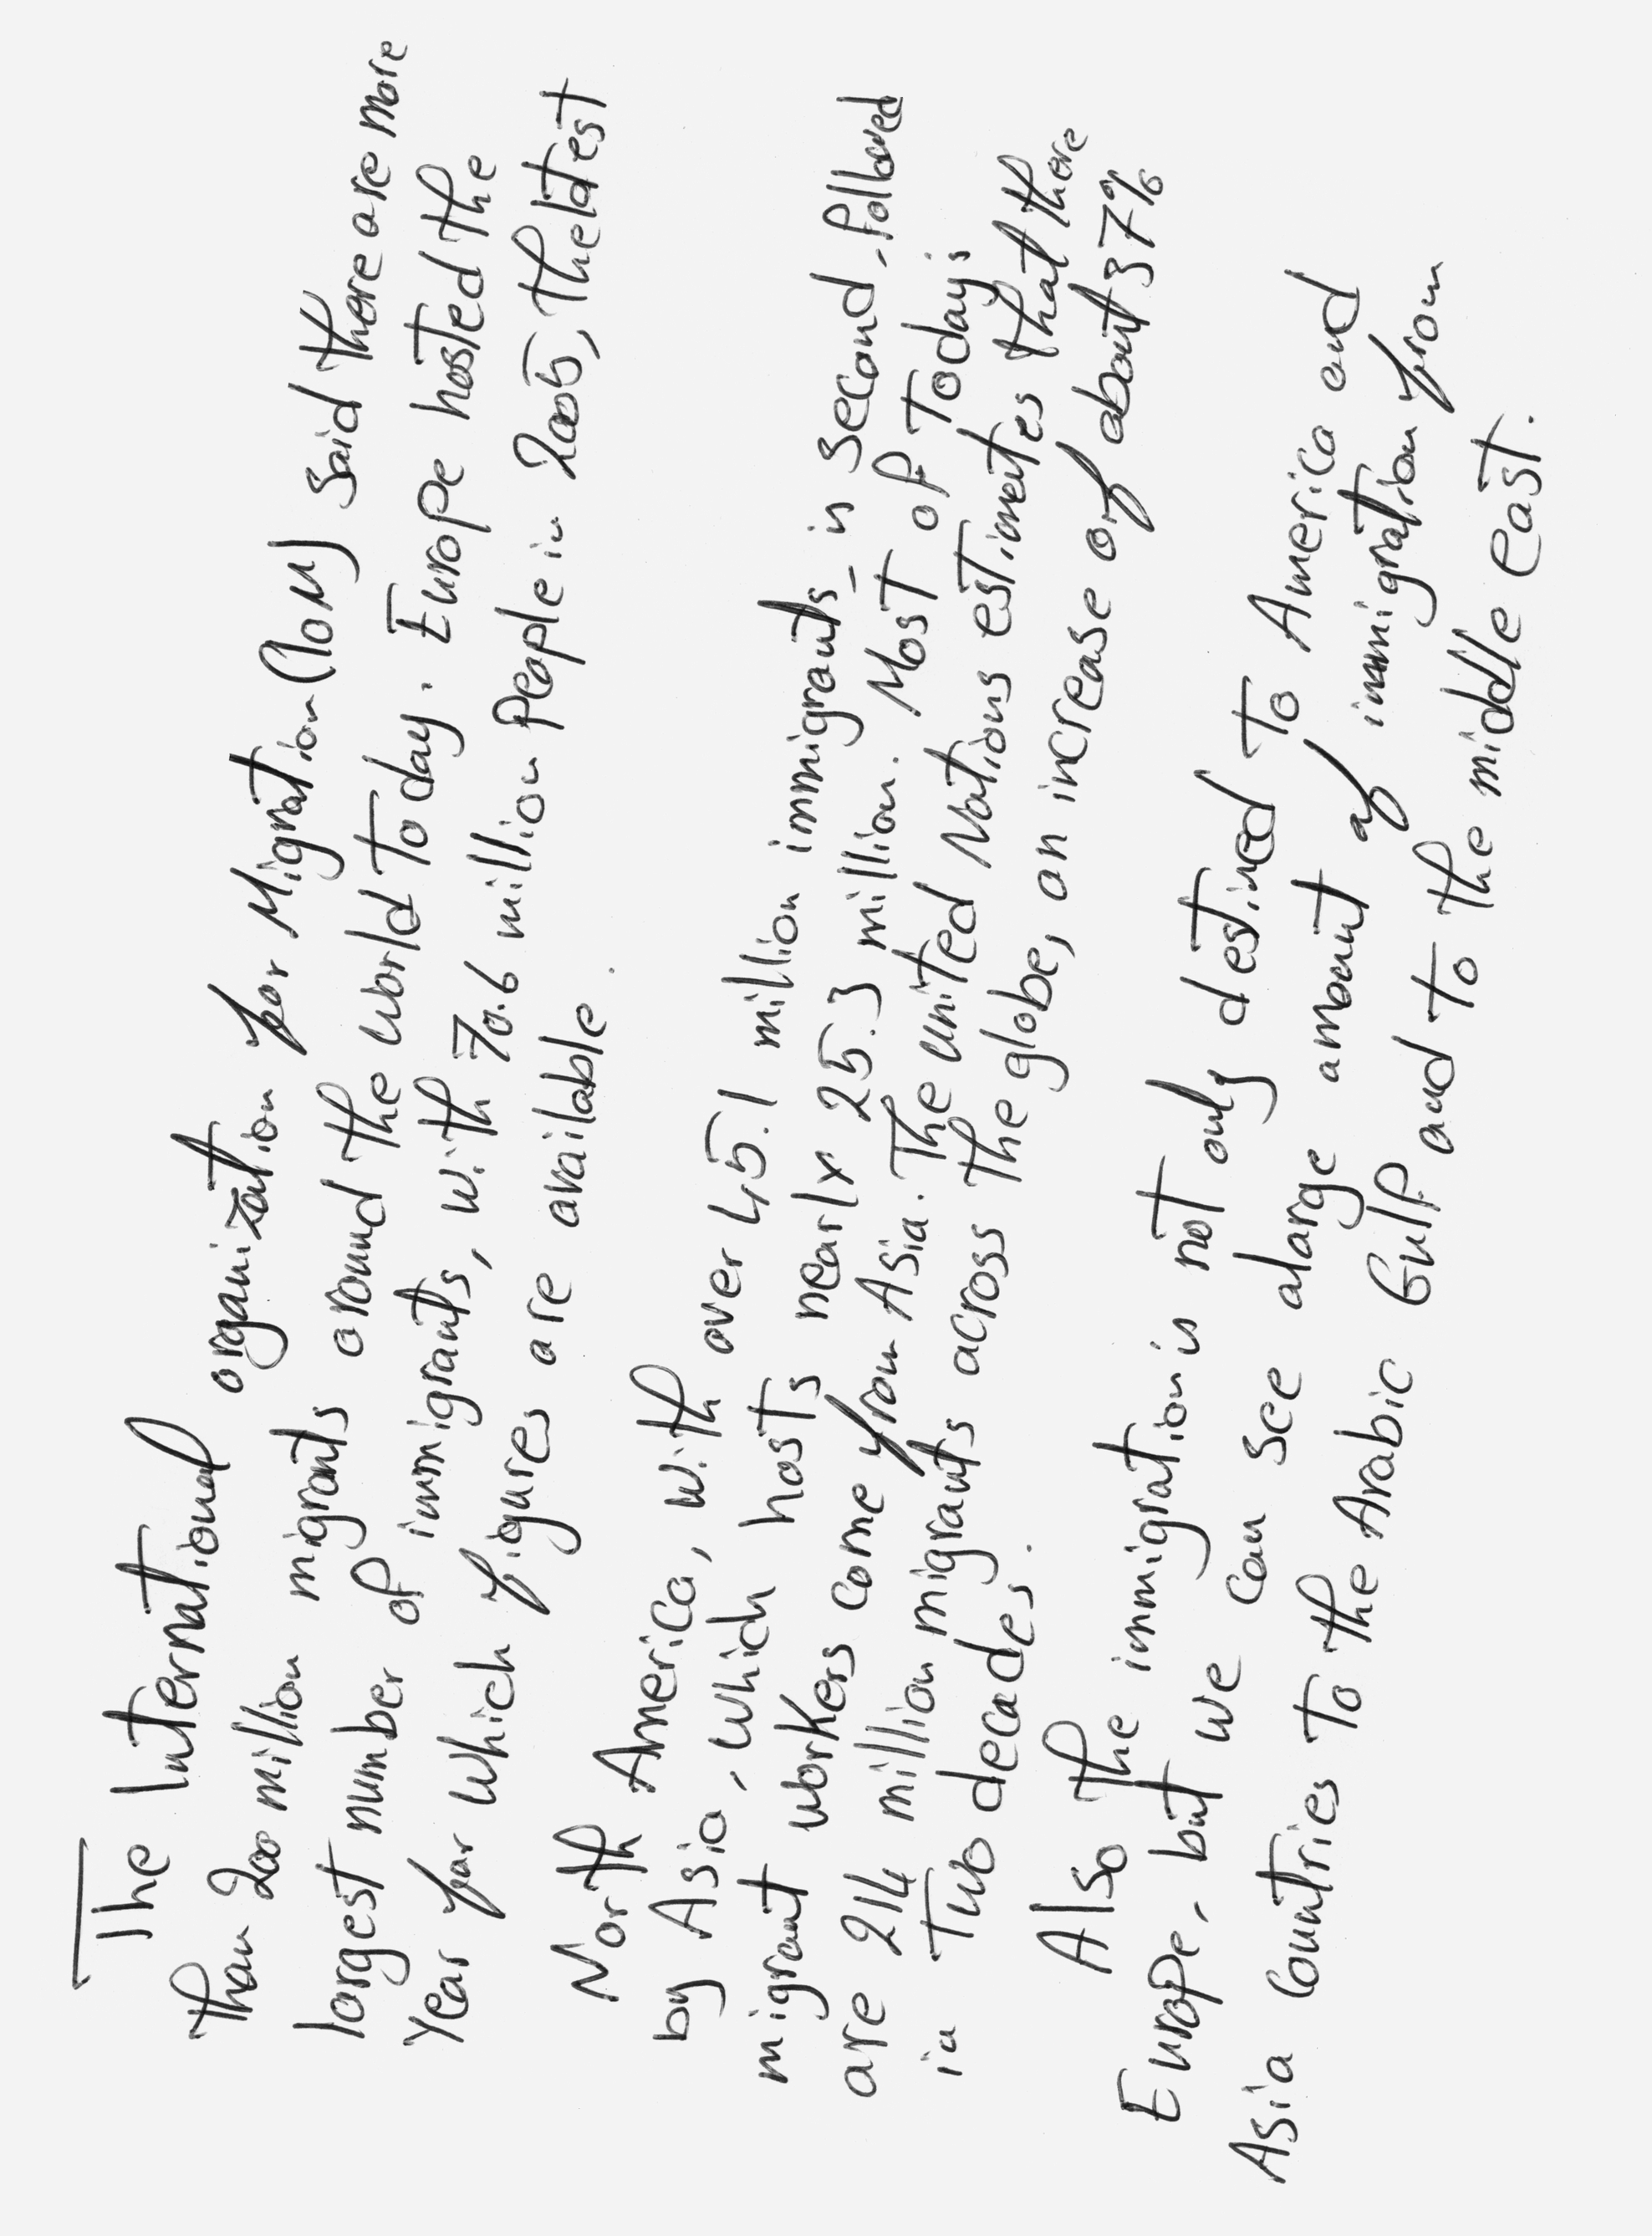 The International organization for Migration (IOM) said there are more
than 200 million migrants around the world today. Europe hosted the
largest number of immigrants, with 70.6 million people in 2005, the latest
year for which figures are available.
North America, with over 45.1 million immigrants, is second, followed
by Asia, which hosts nearly 25.3 million. Most of today's
migrant workers come from Asia. The united Nations estimates that there
are 214 million migrants across the globe, an increase of about 37%
in two decades.
Also the immigration is not only destined to America and
Europe, but we can see alarge amount of immigration from
Asia countries to the Arabic Gulf and to the middle east.